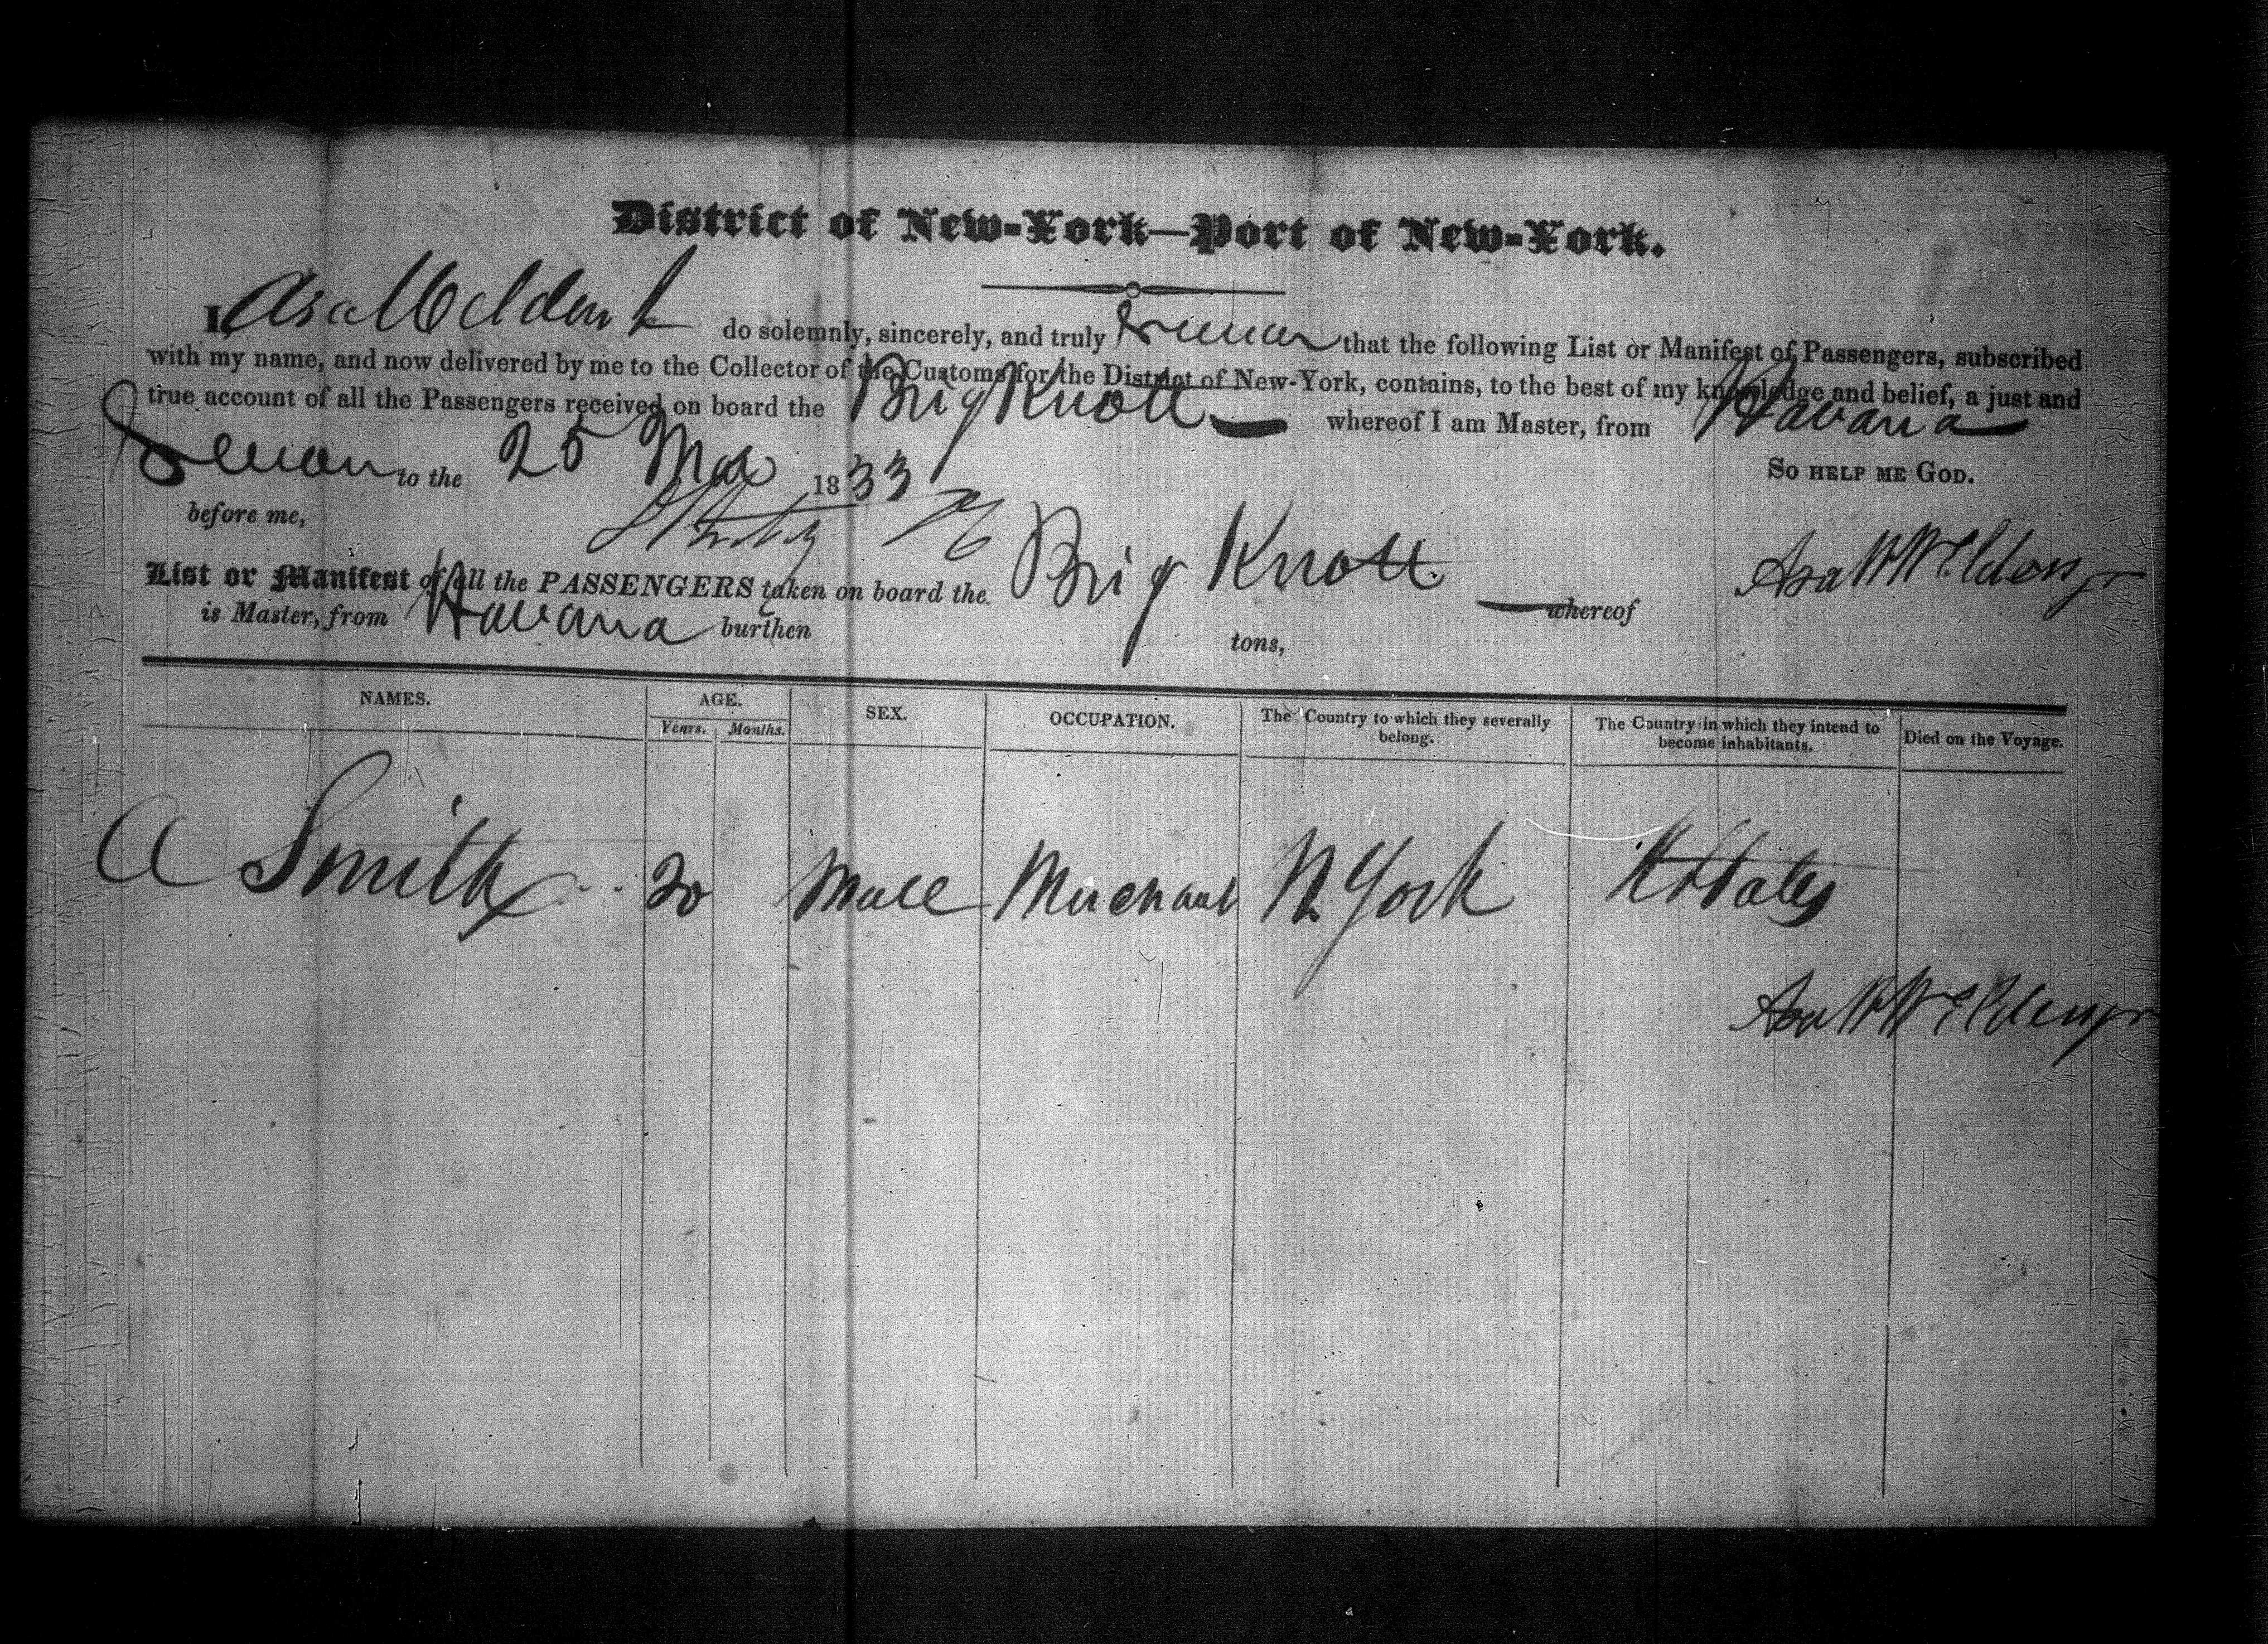 District of New-York—Port of New-York.
I Asa W Weldon Jr do solemnly, sincerely, and truly swear that the following List or Manifest of Passengers, subscribed
with my name, and now delivered by me to the Collector of the Customs for the District of New-York, contains, to the best of my knowledge and belief, a just and
true account of all the Passengers received on board the Brig Knott whereof I am Master, from Havana
Sworn to the 25 Mar 1833 So help me God.
before me,
Asa W Weldon Jr
List or Manifest of all the PASSENGERS taken on board the Brig Knott whereof
is Master, from Havana burthen tons,
NAMES. AGE. SEX. OCCUPATION. The Country to which they severally belong. The Country in which they intend to become inhabitants. Died on the Voyage.
Years. Months.
A Smith 20 Male Merchant N York U States
Asa W Weldon Jr